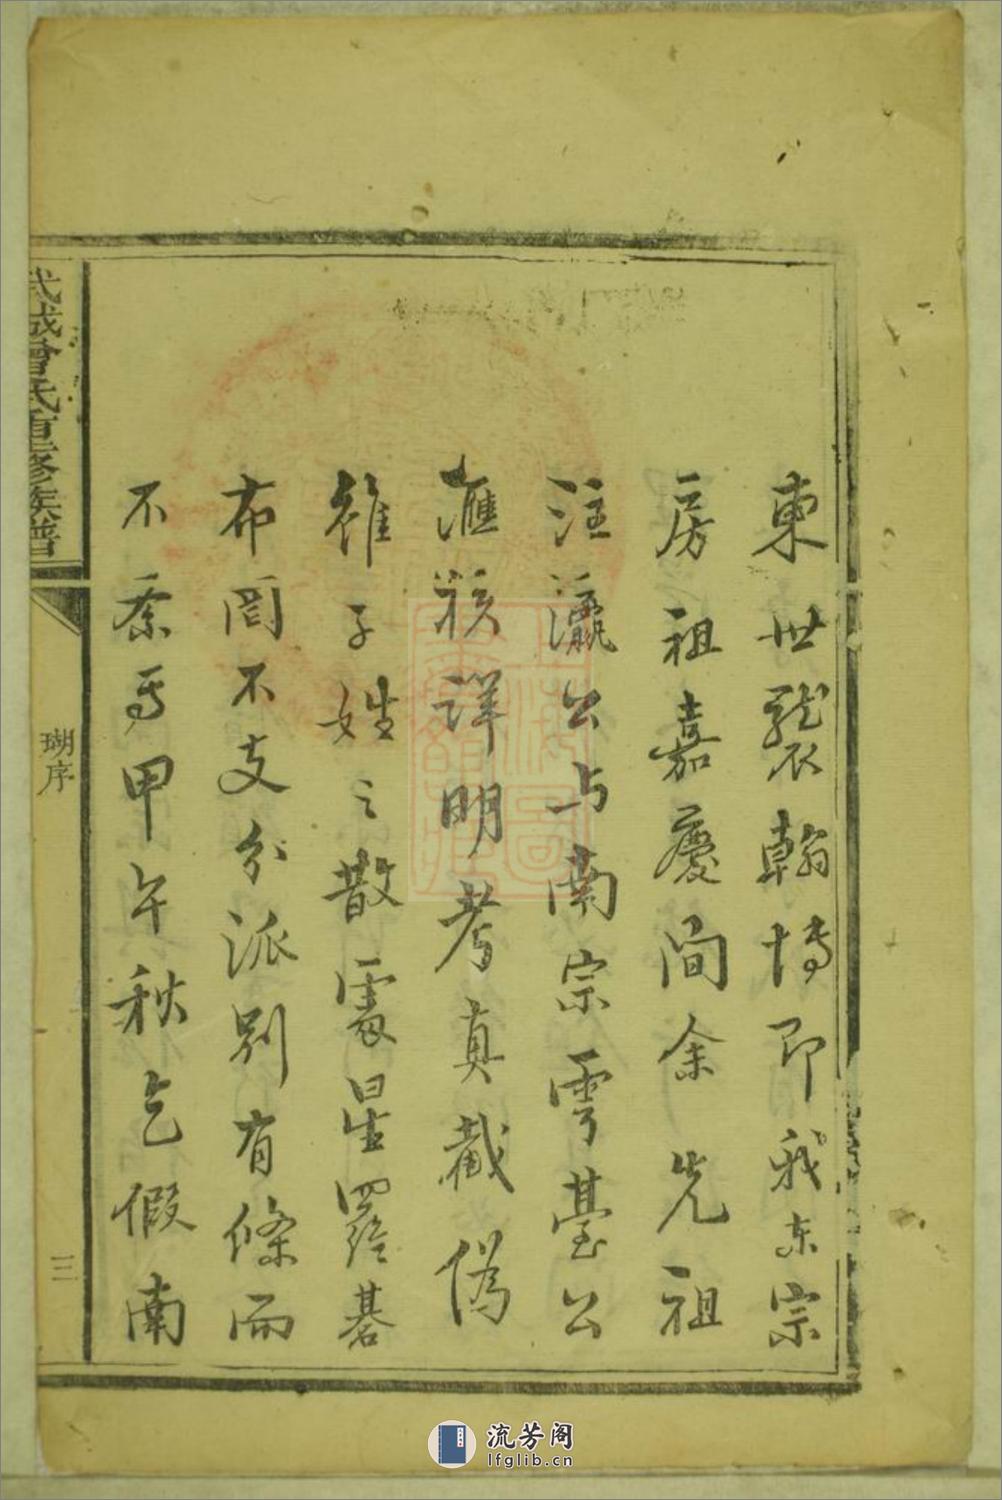 東世襲翰博即我东宗
房祖嘉慶间余先祖
注瀛公与南宗雲臺公
滙核詳明考真截偽
雖子姓之散處星羅碁
布罔不支分派別有條而
不紊焉甲午秋乞假南
武城曾氏重修族譜
瑚序
三
流芳阁
lfglib.cn